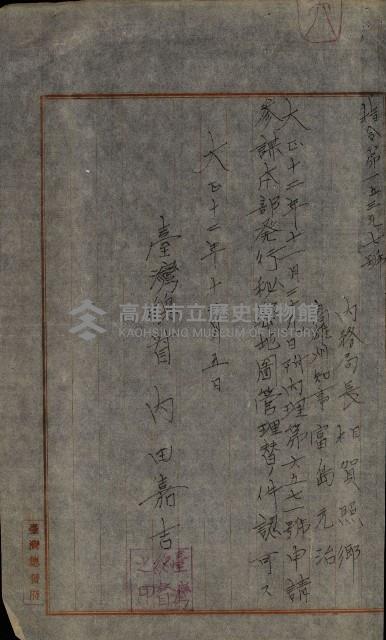 八
指令第一五三九七號
內務局長 相賀照鄉
高雄州知事富島元治
大正十二年十一月二日附內理第六五七一號申請
參謀本部發行秘密地圖管理替ノ件認可ス
大正十二年十一月五日
臺灣總督 內田嘉吉
臺灣總督之印
臺灣總督府
高雄市立歷史博物館
KAOHSIUNG MUSEUM OF HISTORY